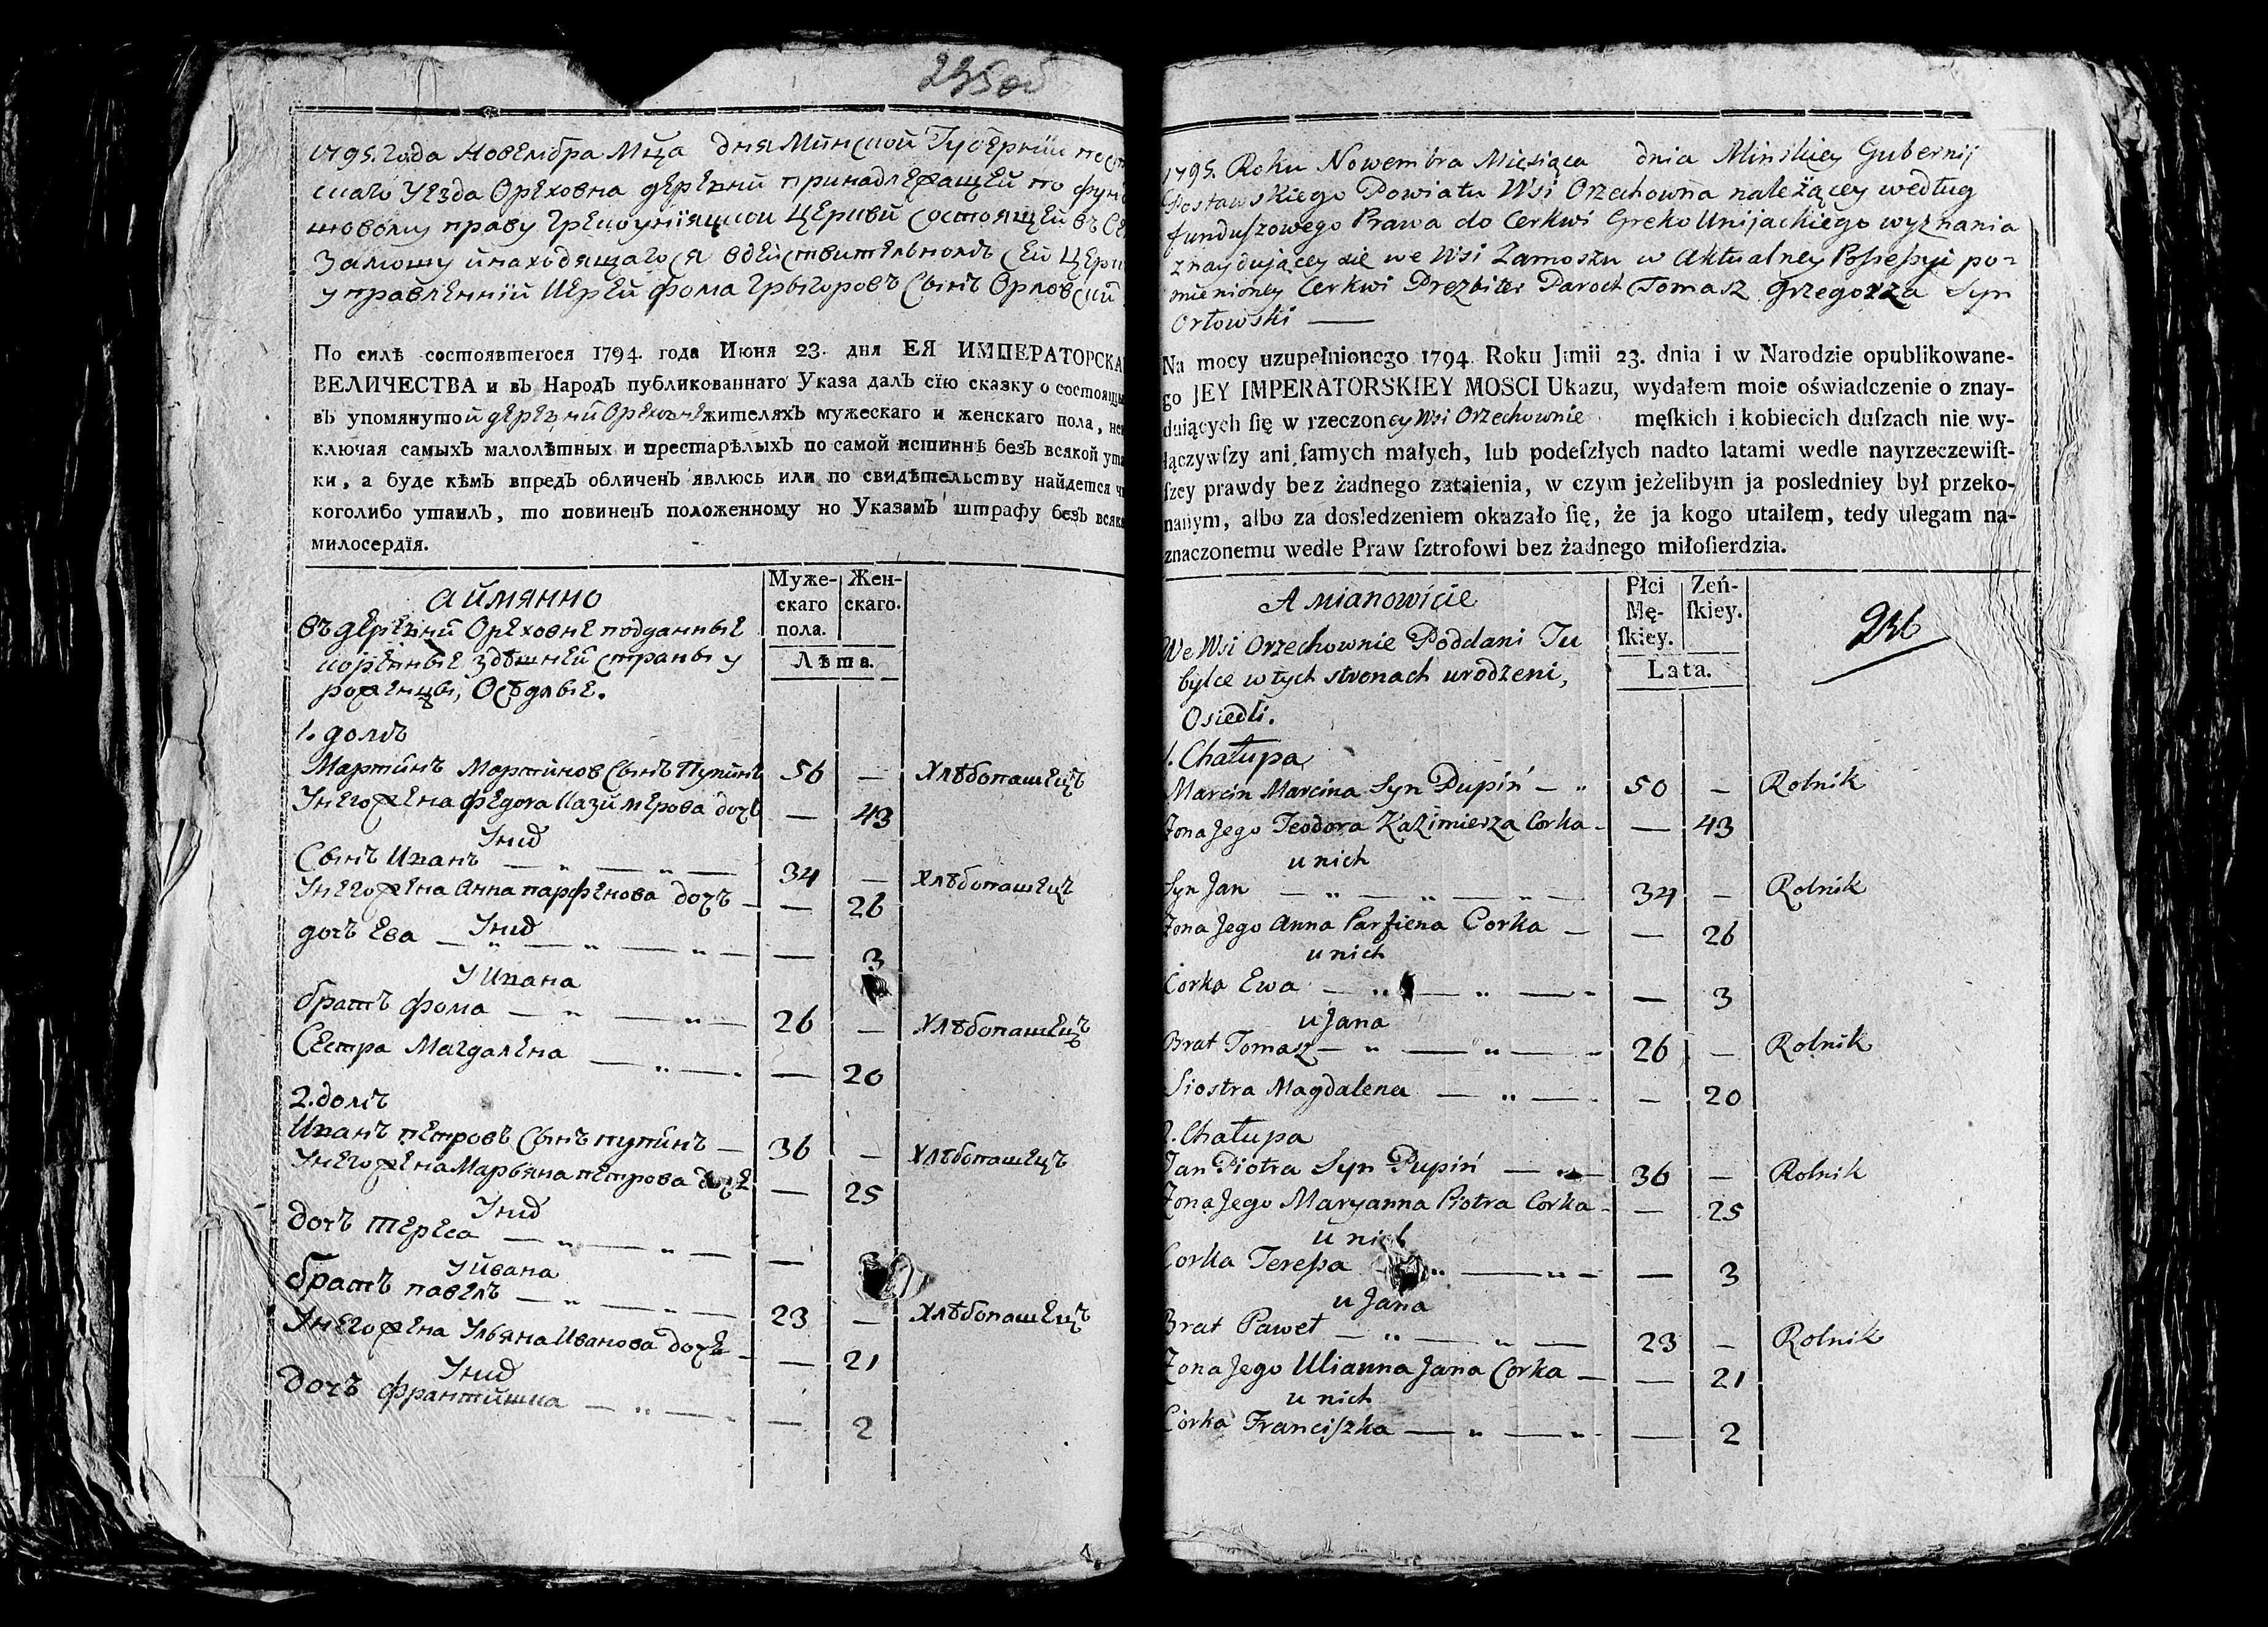 235об
1795. Года Новембра Мца дня Минской Губернїи
скаго уезда Ореховна деревни принадлежащей по
шовому праву Грекоунїяцкои Церкви состоящей въ
Замошу инаходящагося вдействительномъ сей
управленнїи Иерей Фома Грыгоровъ Сынъ Орловский
По силѣ состоявшегося 1794. года Июня 23. дня ЕЯ ИМПЕРАТОРСКА
ВЕЛИЧЕСТВА и въ Народъ публикованнаго Указа далъ сїю сказку о
въ упомянутой деревни Ореховне жителяхъ мужескаго и женскаго пола,
ключая самыхъ малолѣтныхъ и престарѣлыхъ по самой истиннѣ безъ всякой
ки, а буде кѣмъ впредъ обличенъ явлюсь или по свидѣтельству найдется
коголибо утаилъ, то повиненъ положенному по Указамъ штрафу безъ
милосердїя.
аймянно
Муже-скаго пола.
Жен-скаго.
Лѣта.
въ деревни Ореховне подданные
коренные здѣшней страны у
роженцы, Осѣдлые.
1. домъ
Мартинъ Мартинов Сынъ Пупинъ 56 — Хлѣбопашецъ
Унего жена Федora Казимерова дочь — 43
Унихъ
Сынъ Иванъ — „ — „ — 34 — Хлѣбопашецъ
Унего жена Анна парфенова дочъ — — 26
Унихъ
дочъ Ева — „ — „ — „ — — 3
У Ивана
братъ Фома — „ — „ — 26 — Хлѣбопашецъ
Сестра Магдалена — „ — „ — 20
2. домъ
Иванъ петровъ Сынъ пупинъ — 36 — Хлѣбопашецъ
Унего жена Марьяна петрова — 25
Унихъ
дочъ Тереса — „ — „ — —
У Ивана
братъ павелъ — „ — „ — 23 — Хлѣбопашецъ
Унего жена Ульяна Иванова дочь — — 21
Унихъ
дочъ франтишка — „ — „ — 2
1795. Roku Nowembra Miesiąca dnia Minskiey Gubernij
Postawskiego Powiatu Wsi Orzechowna należącey według
funduszowego Prawa do Cerkwi Greko Unijackiego wyznania
znaydującey się we Wsi Zamoszu w Aktualney Possessyi po-
mienioney Cerkwi Prezbiter Paroch Tomasz Grzegorza Syn
Orłowski —
Na mocy uzupełnionego 1794. Roku Junii 23. dnia i w Narodzie opublikowane-
go JEY IMPERATORSKIEY MOSCI Ukazu, wydałem moie oświadczenie o znay-
duiących ſię w rzeczoney Wsi Orzechownie męſkich i kobiecich duſzach nie wy-
łączywſzy ani ſamych małych, lub podeſzłych nadto latami wedle nayrzeczewiſt-
ſzey prawdy bez żadnego zataienia, w czym jeżelibym ja posledniey był przeko-
nanym, albo za dosledzeniem okazało ſię, że ja kogo utaiłem, tedy ulegam na-
znaczonemu wedle Praw ſztrofowi bez żadnego miłoſierdzia.
A mianowicie
Płci Mę-ſkiey.
Zeń-ſkiey.
Lata.
236
We Wsi Orzechownie Poddani Tu
bylce w tych stronach urodzeni,
Osiedli.
1. Chałupa
Marcin Marcina Syn Pupiń — „ 50 — Rolnik
Zona Jego Teodora Kazimierza Corka — — 43
u nich
Syn Jan — „ — „ — „ — 34 — Rolnik
Zona Jego Anna Parfiena Corka — — 26
u nich
Corka Ewa — „ — „ — „ — 3
u Jana
Brat Tomasz — „ — „ — „ 26 — Rolnik
Siostra Magdalena — „ — — 20
2. Chałupa
Jan Piotra Syn Pupiń — „ — 36 — Rolnik
Zona Jego Maryanna Piotra Corka — — 25
u nich
Corka Teressa — „ — „ — — 3
u Jana
Brat Paweł — „ — „ — 23 — Rolnik
Zona Jego Ulianna Jana Corka — — 21
u nich
Corka Franciszka — „ — „ — — 2